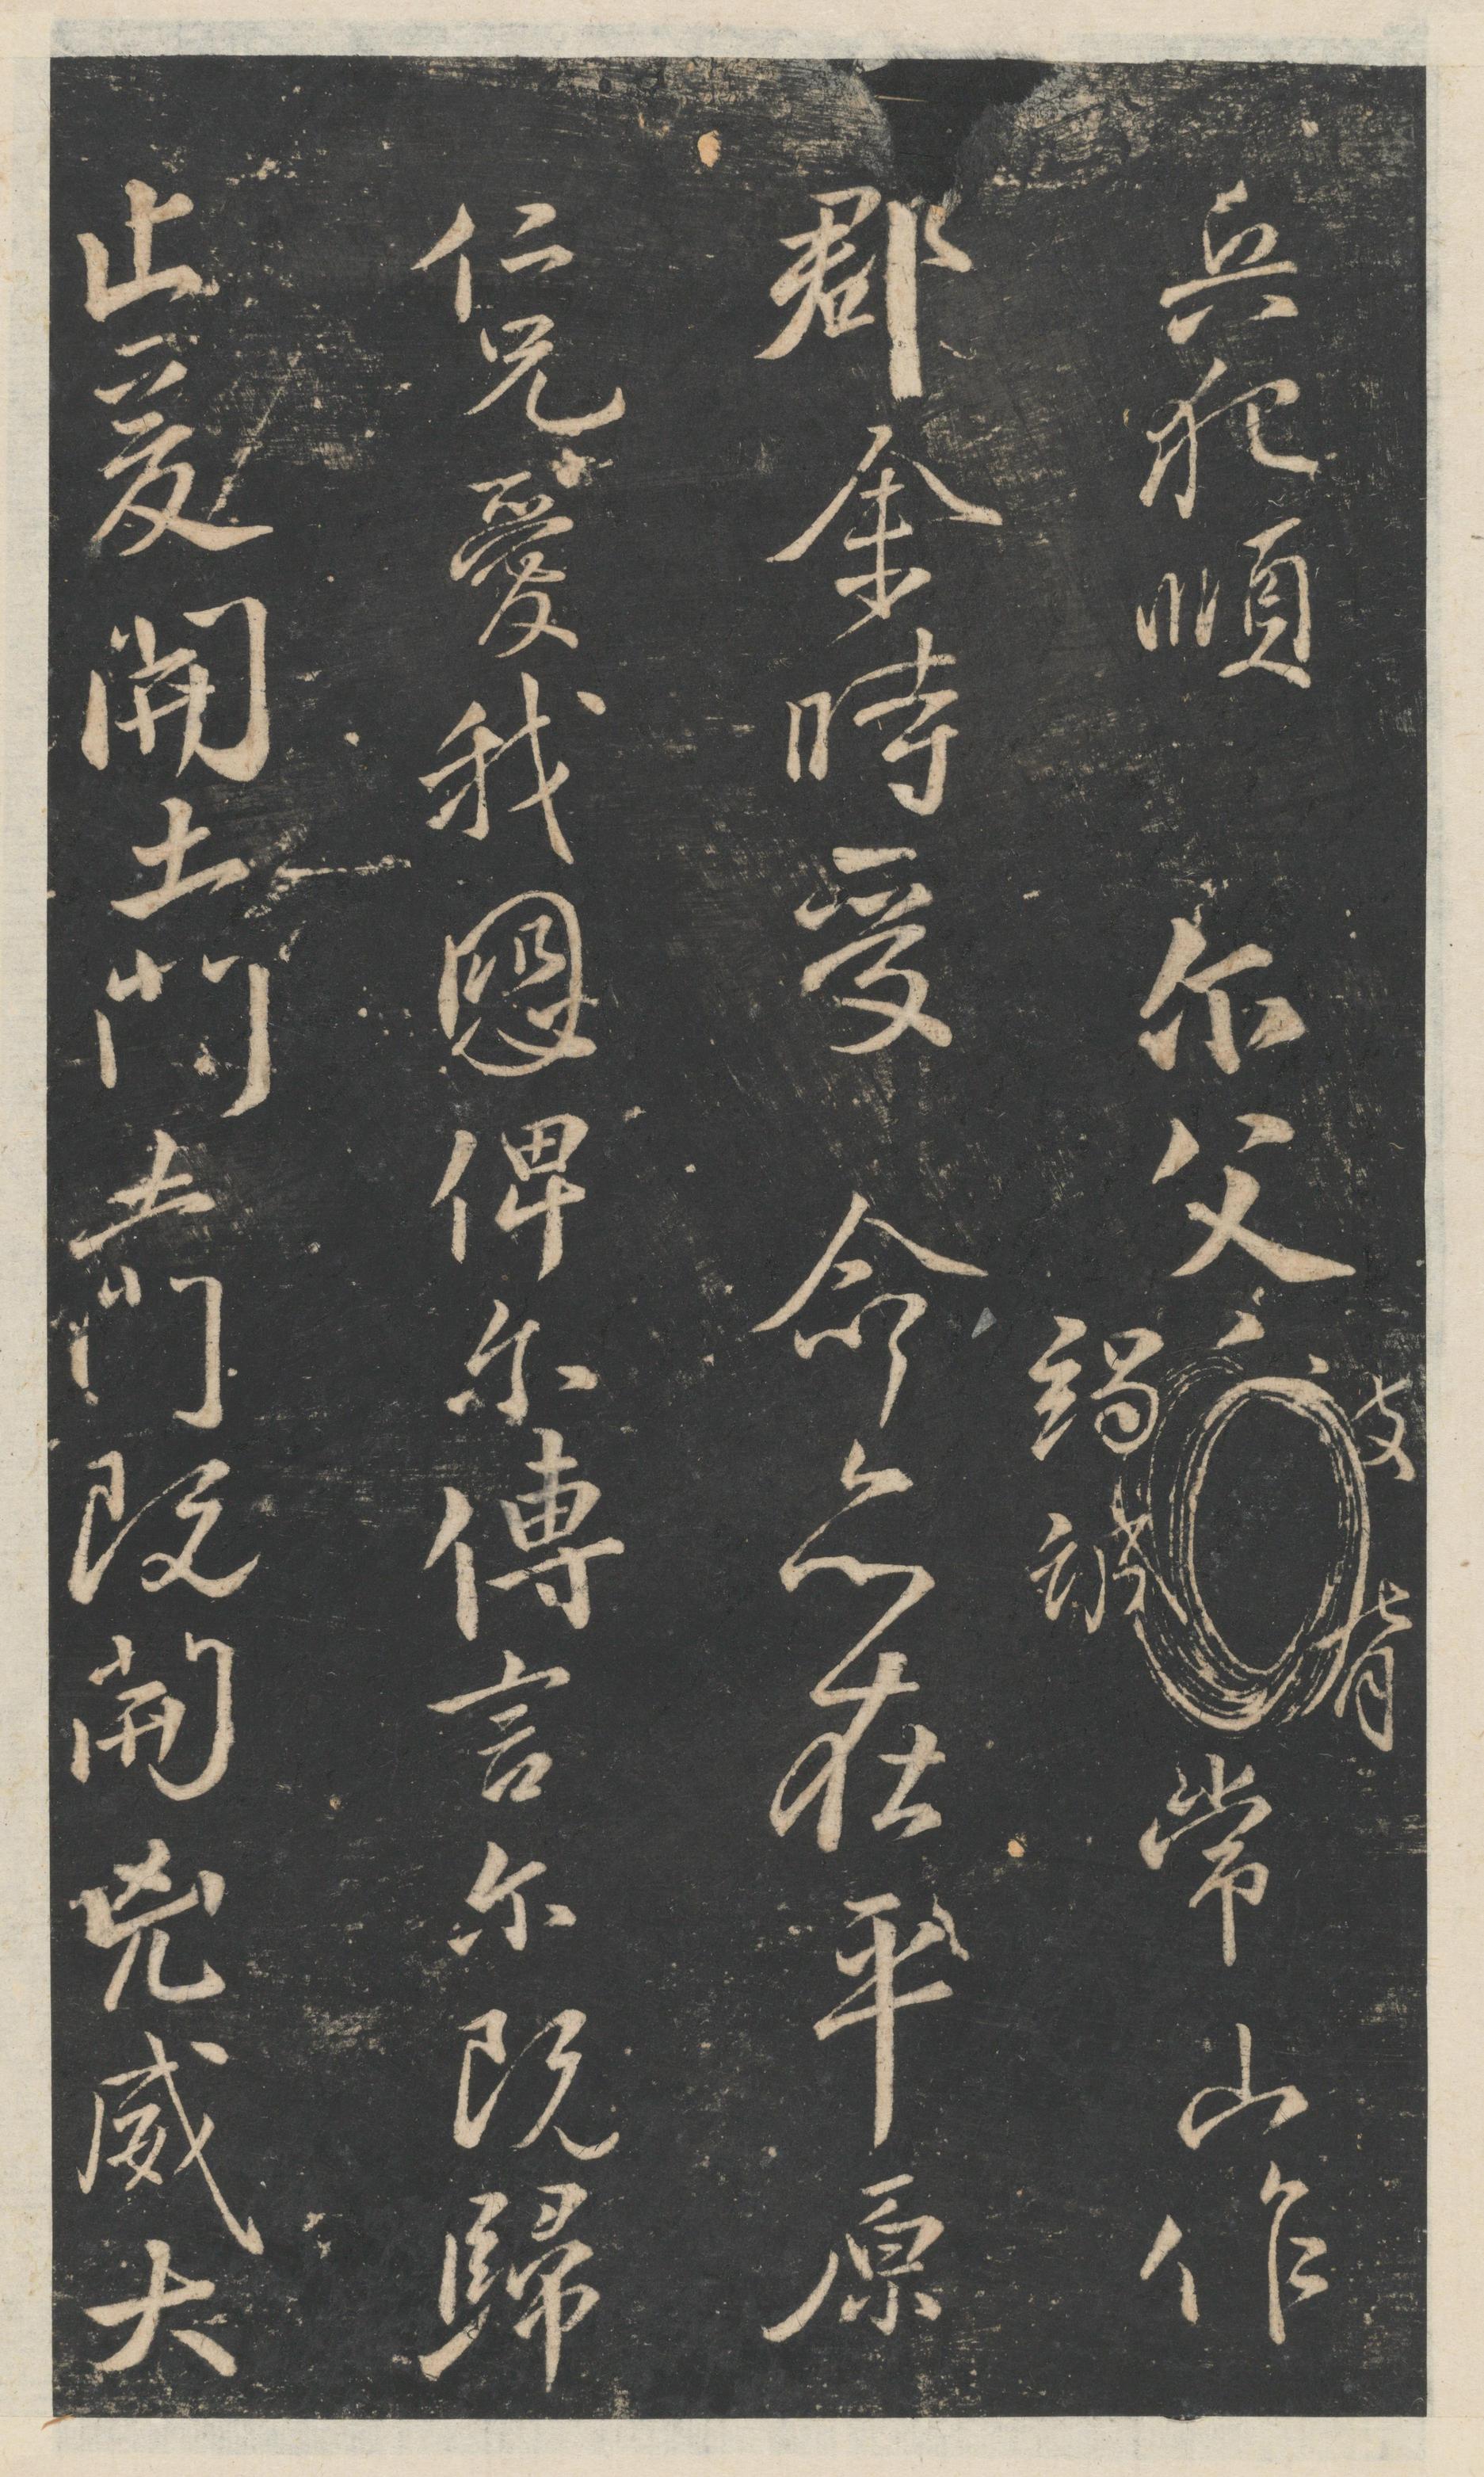 兵犯順尔父竭誠常山作
郡余時受命亦在平原
仁兄愛我恩俾尔傳言尔既歸
止爰開土門土門既開兇威大